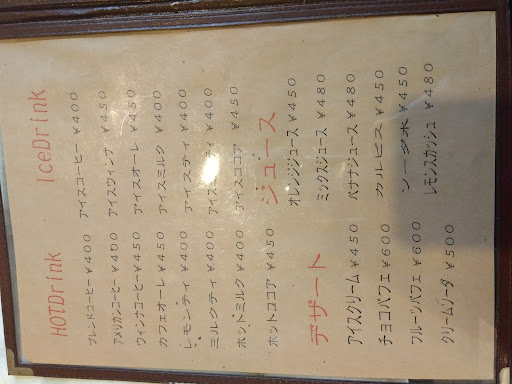 HOTDrink
ブレンドコーヒー ¥400
アメリカンコーヒー ¥400
ウィンナコーヒー ¥450
カフェオーレ ¥450
レモンティ ¥400
ミルクティ ¥400
ホットミルク ¥400
ホットココア ¥450
デザート
アイスクリーム ¥450
チョコパフェ ¥600
フルーツパフェ ¥600
クリームソーダ ¥500
IceDrink
アイスコーヒー ¥400
アイスウィンナ ¥450
アイスオーレ ¥450
アイスミルク ¥400
アイスティ ¥400
¥400
アイスココア ¥450
ジュース
オレンジジュース ¥450
ミックスジュース ¥480
バナナジュース ¥480
カルピス ¥450
ソーダ水 ¥450
レモンスカッシュ ¥480